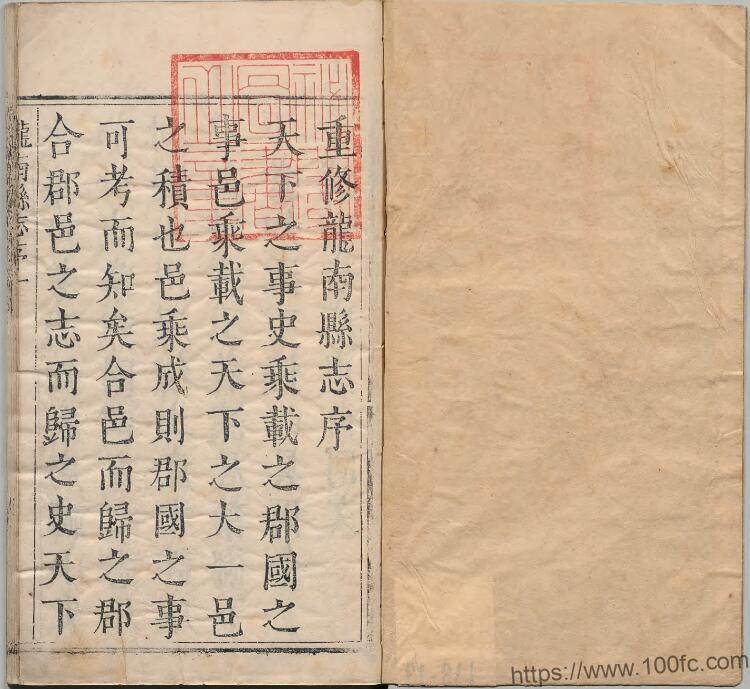 重修龍南縣志序
天下之事史乘載之郡國之
事邑乘載之天下之大一邑
之積也邑乘成則郡國之事
可考而知矣合邑而歸之郡
合郡邑之志而歸之史天下
龍南縣志序 一
https://www.100fc.com